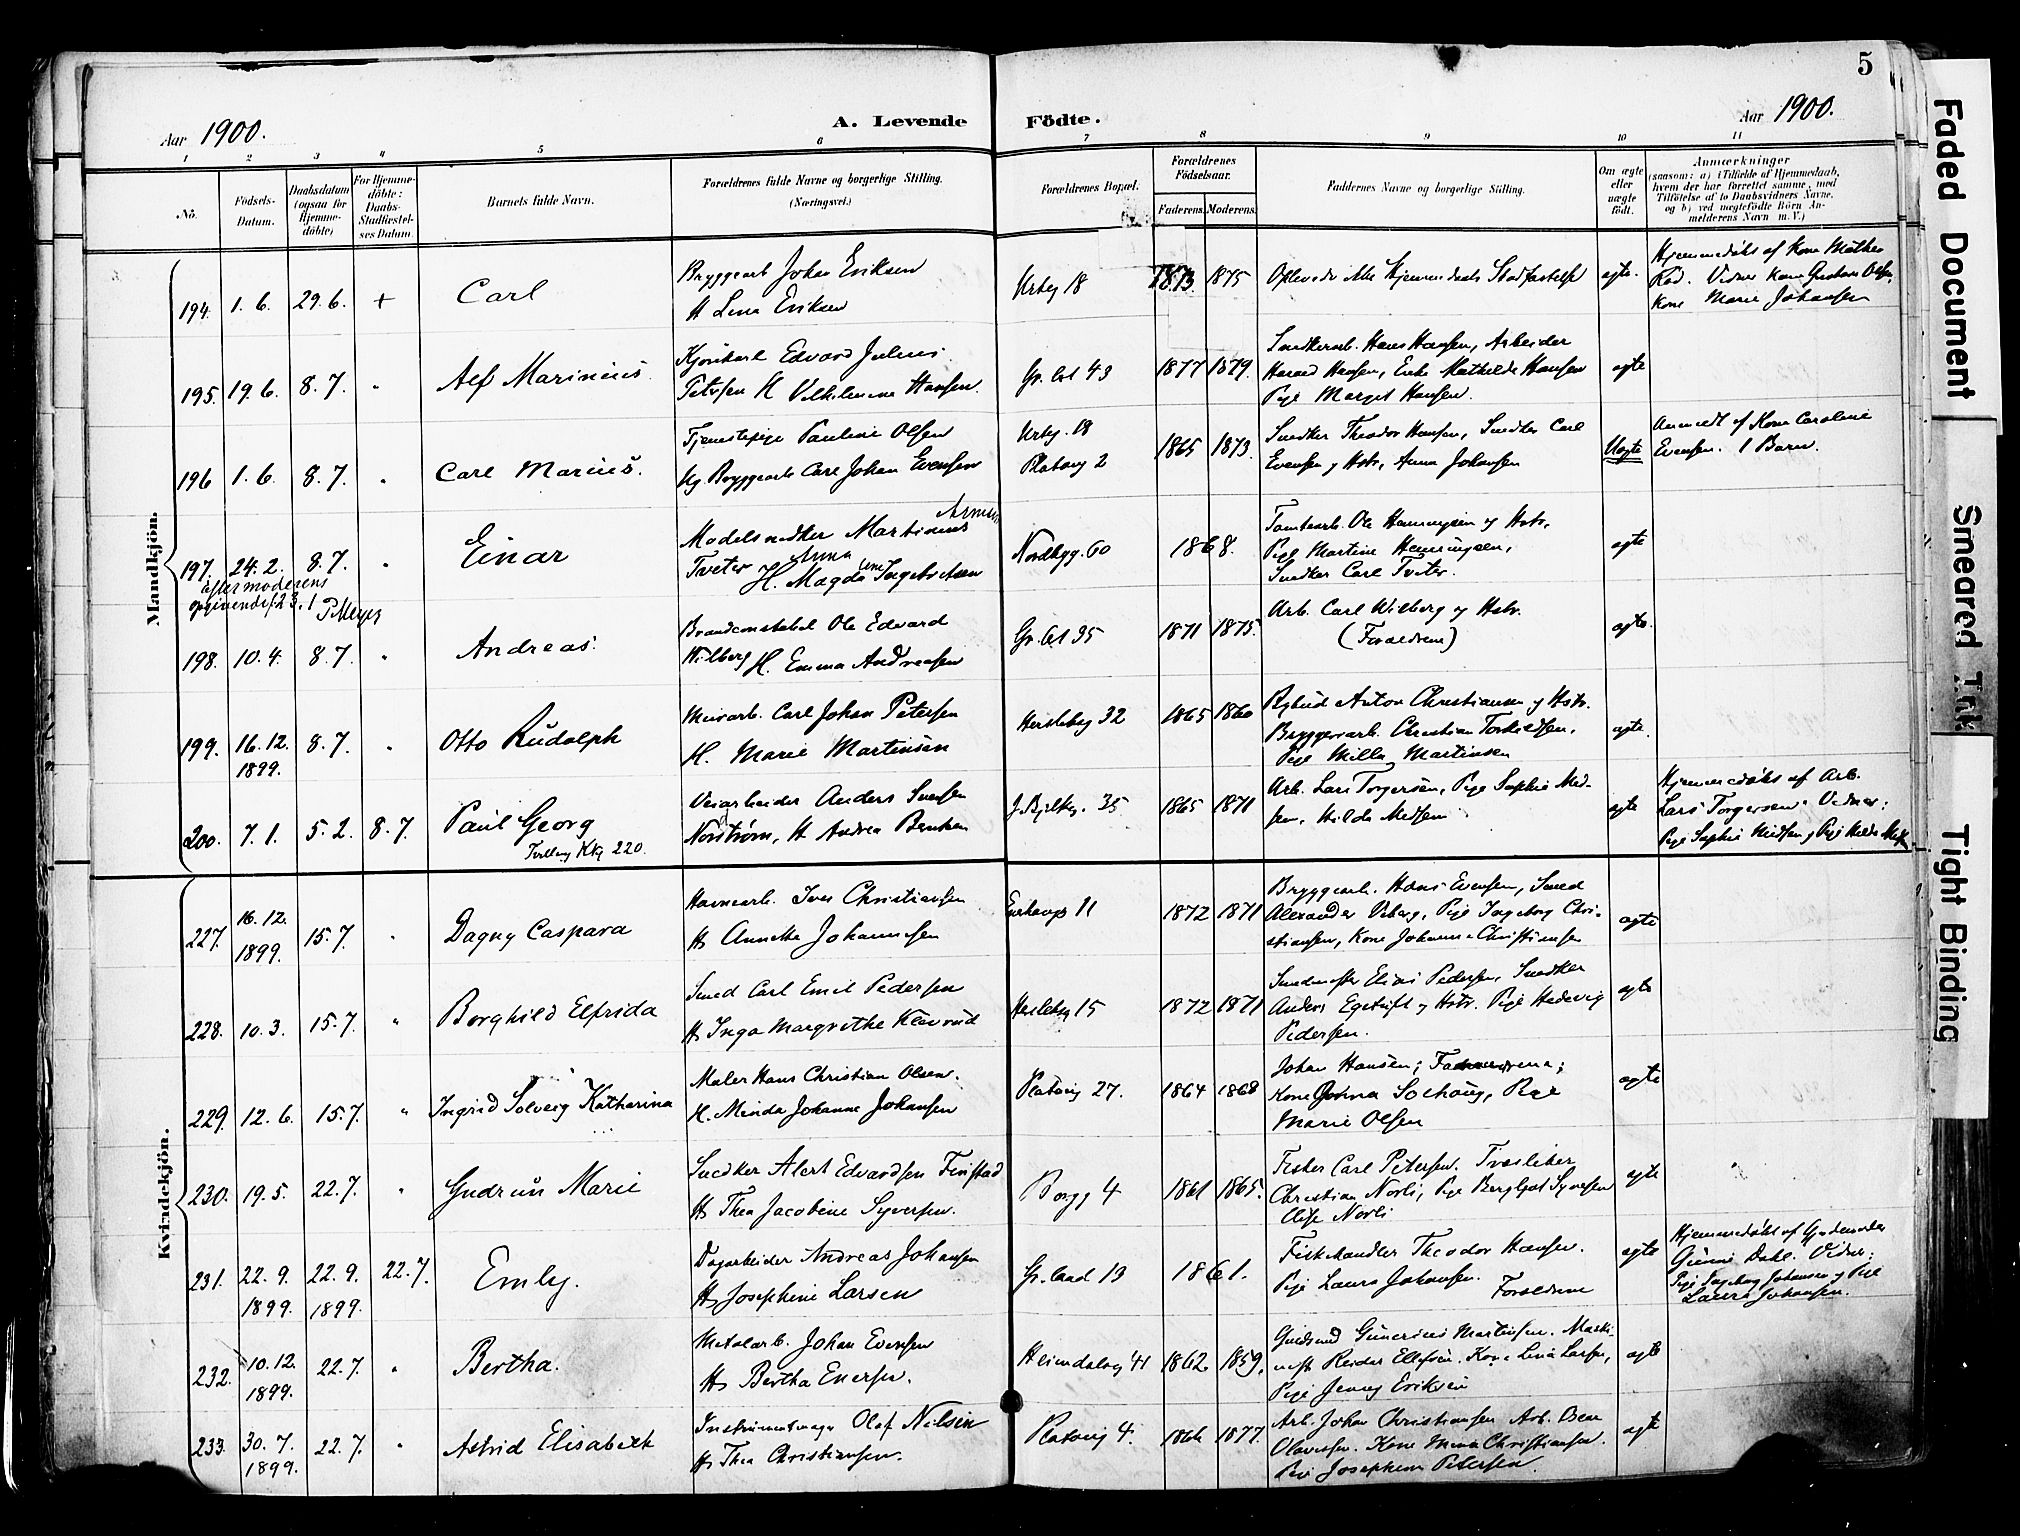 5
Aar 1900.
A. Levende Födte.
Aar 1900.
1 2 3 4 5 6 7 8 9 10 11
Nö.
Födsels-
Datum.
Daabsdatum
(ogsaa for
Hjemme-
döbte)
For Hjemme-
döbte:
Daabs-
Stadfæstel-
ses Datum.
Barnets fulde Navn.
Forældrenes fulde Navne og borgerlige Stilling.
(Næringsvei.)
Forældrenes Bopæl.
Forældrenes
Födselsaar.
Faderens. Moderens.
Faddernes Navne og borgerlige Stilling.
Om ægte
eller
uægte
födt.
Anmærkninger
(saasom: a) i Tilfælde af Hjemmedaab,
hvem der har forrettet samme, med
Tilföielse af to Daabsvidners Navne,
og b) ved uægtefödte Börn An-
melderens Navn m. V.)
Mandkjön.
194. 1. 6. 29. 6. + Carl
Bryggearb Johan Eriksen
H Lina Eriksen
Urbg 18 1873. 1875
ægte.
Hjemmedøbt af Kone Mathea
Kone Marie Johansen
195. 19. 6. 8. 7. " Alf Marinius.
Kjørekarl Edvard Julius
Petersen H Vilhelmine Hansen.
Gr. lst 43 1877 1879.
Snedkerarb. Hans Hansen, Arbeider
Harald Hansen, Enke Mathilde Hansen
Pige Margit Hansen.
ægte
196 1. 6. 8. 7. " Carl Marius.
Tjenestepige Pauline Olsen
Ug Bryggearb Carl Johan Evensen
Urbg. 18
Platoug 2 1865 1873.
Snedker Theodor Hansen, Snedker Carl
Evensen og Hstr, Anna Johansen
Uægte
Anmeldt af Kone Caroline
Evensen. 1 Barn.
197. 24. 2. 8. 7. " Einar
Efter moderens
opgivende f 23. 1 P. Meyer
Modelsnedker Martinius
Tveter H. Magda Ingebretsen
Anna
Nordbyg. 60 1868.
Tomtearb. Ole Henningsen og Hstr.
Pige Martine Henningsen,
Snedker Carl Tveter.
ægte
198. 10. 4. 8. 7. " Andreas.
Brandconstabel Ole Edvard
Wilberg H. Emma Andreasen
Gr. lst 35 1871 1875.
Arb. Carl Wilberg og Hstr.
(Forældrene)
ægte.
199. 16. 12. 8. 7. " Otto Rudolph
1899.
Murarb. Carl Johan Petersen
H. Marie Martinsen
Herslebsg 32 1865 1860
Bybud Anton Christiansen og Hstr.
Bryggeriarb. Christian Torkildsen,
Pige Milla Martinsen
ægte.
200. 7. 1. 5. 2. 8. 7. Paul Georg
Tvilling Kkj 220.
Veiarbeider Anders Svensen
Norstrøm, H Andrea Berntsen
J. Bjelkesg. 35 1865 1871
Arb. Lars Torgersen, Pige Sophie Mad-
sen, Hilda Madsen
ægte
Hjemmedøbt af Arb.
Lars Torgersen. Vidner:
Pige Sophie Madsen og Pige Hilda Mads
Kvindekjön.
227. 16. 12. 15. 7. " Dagny Caspara
1899.
Havnearb. Iver Christiansen
H Annette Johannesen
Enerhaugs 11 1872 1871
Bryggearb. Hans Evensen, Smed
Alexander Viberg, Pige Ingeborg Chri-
stiansen, Kone Johanne Christiansen
ægte
228. 10. 3. 15. 7. " Borghild Elfrida
Smed Carl Emil Pedersen
H Inga Margrethe Klevrud
Herslebsg 15 1872 1871
Smedmester Elias Pedersen, Snedker
Anders og Hstr. Pige Hedevig
Pedersen.
ægte
229. 12. 6. 15. 7. " Ingrid Solveig Katharina
Maler Hans Christian Olsen.
H. Minda Johanne Johansen
Platoug 27. 1864 1868
Johan Hansen; Forældrene;
Kone Anna Solhaug, Pige
Marie Olsen
ægte
230. 19. 5. 22. 7. " Gudrun Marie
Snedker Alert Edvardsen Finstad
H Thea Jacobine Syversen.
Borgg 4 1861 1865.
Fisker Carl Petersen. Træsliber
Christian Norli, Pige Bergljot Syversen
Norli
ægte
231. 22. 9. 22. 9. 22. 7. Emly.
1899. 1899.
Dagarbeider Andreas Johansen
H Josephine Larsen
Gr. land 13 1861.
Fiskehandler Theodor Hansen.
Pige Laura Johansen. Forældrene
ægte
Hjemmedøbt af Gjordemoder
Dahl. Vidner:
Pige Ingeborg Johansen og Pige
Laura Johansen.
232. 10. 12. 22. 7. " Bertha.
1899.
Metalarb. Johan Evensen
H Bertha Enersen.
Heimdalsg 41 1862. 1859.
Gunerius Martinsen. Maski-
nist Reidar Ellefsen. Kone Lina Larsen,
Pige Jenny Eriksen
ægte
233. 30. 7. 22. 7. " Astrid Elisabeth
1899.
Instrumentmager Olaf Nilsen
H Thea Christiansen.
Platoug 4. 1866 1877.
Arb. Johan Christiansen Arb.
Olavesen. Kone Christiansen.
Pige Josephine Petersen.
ægte
Faded Document
Smeared Ink
Tight Binding